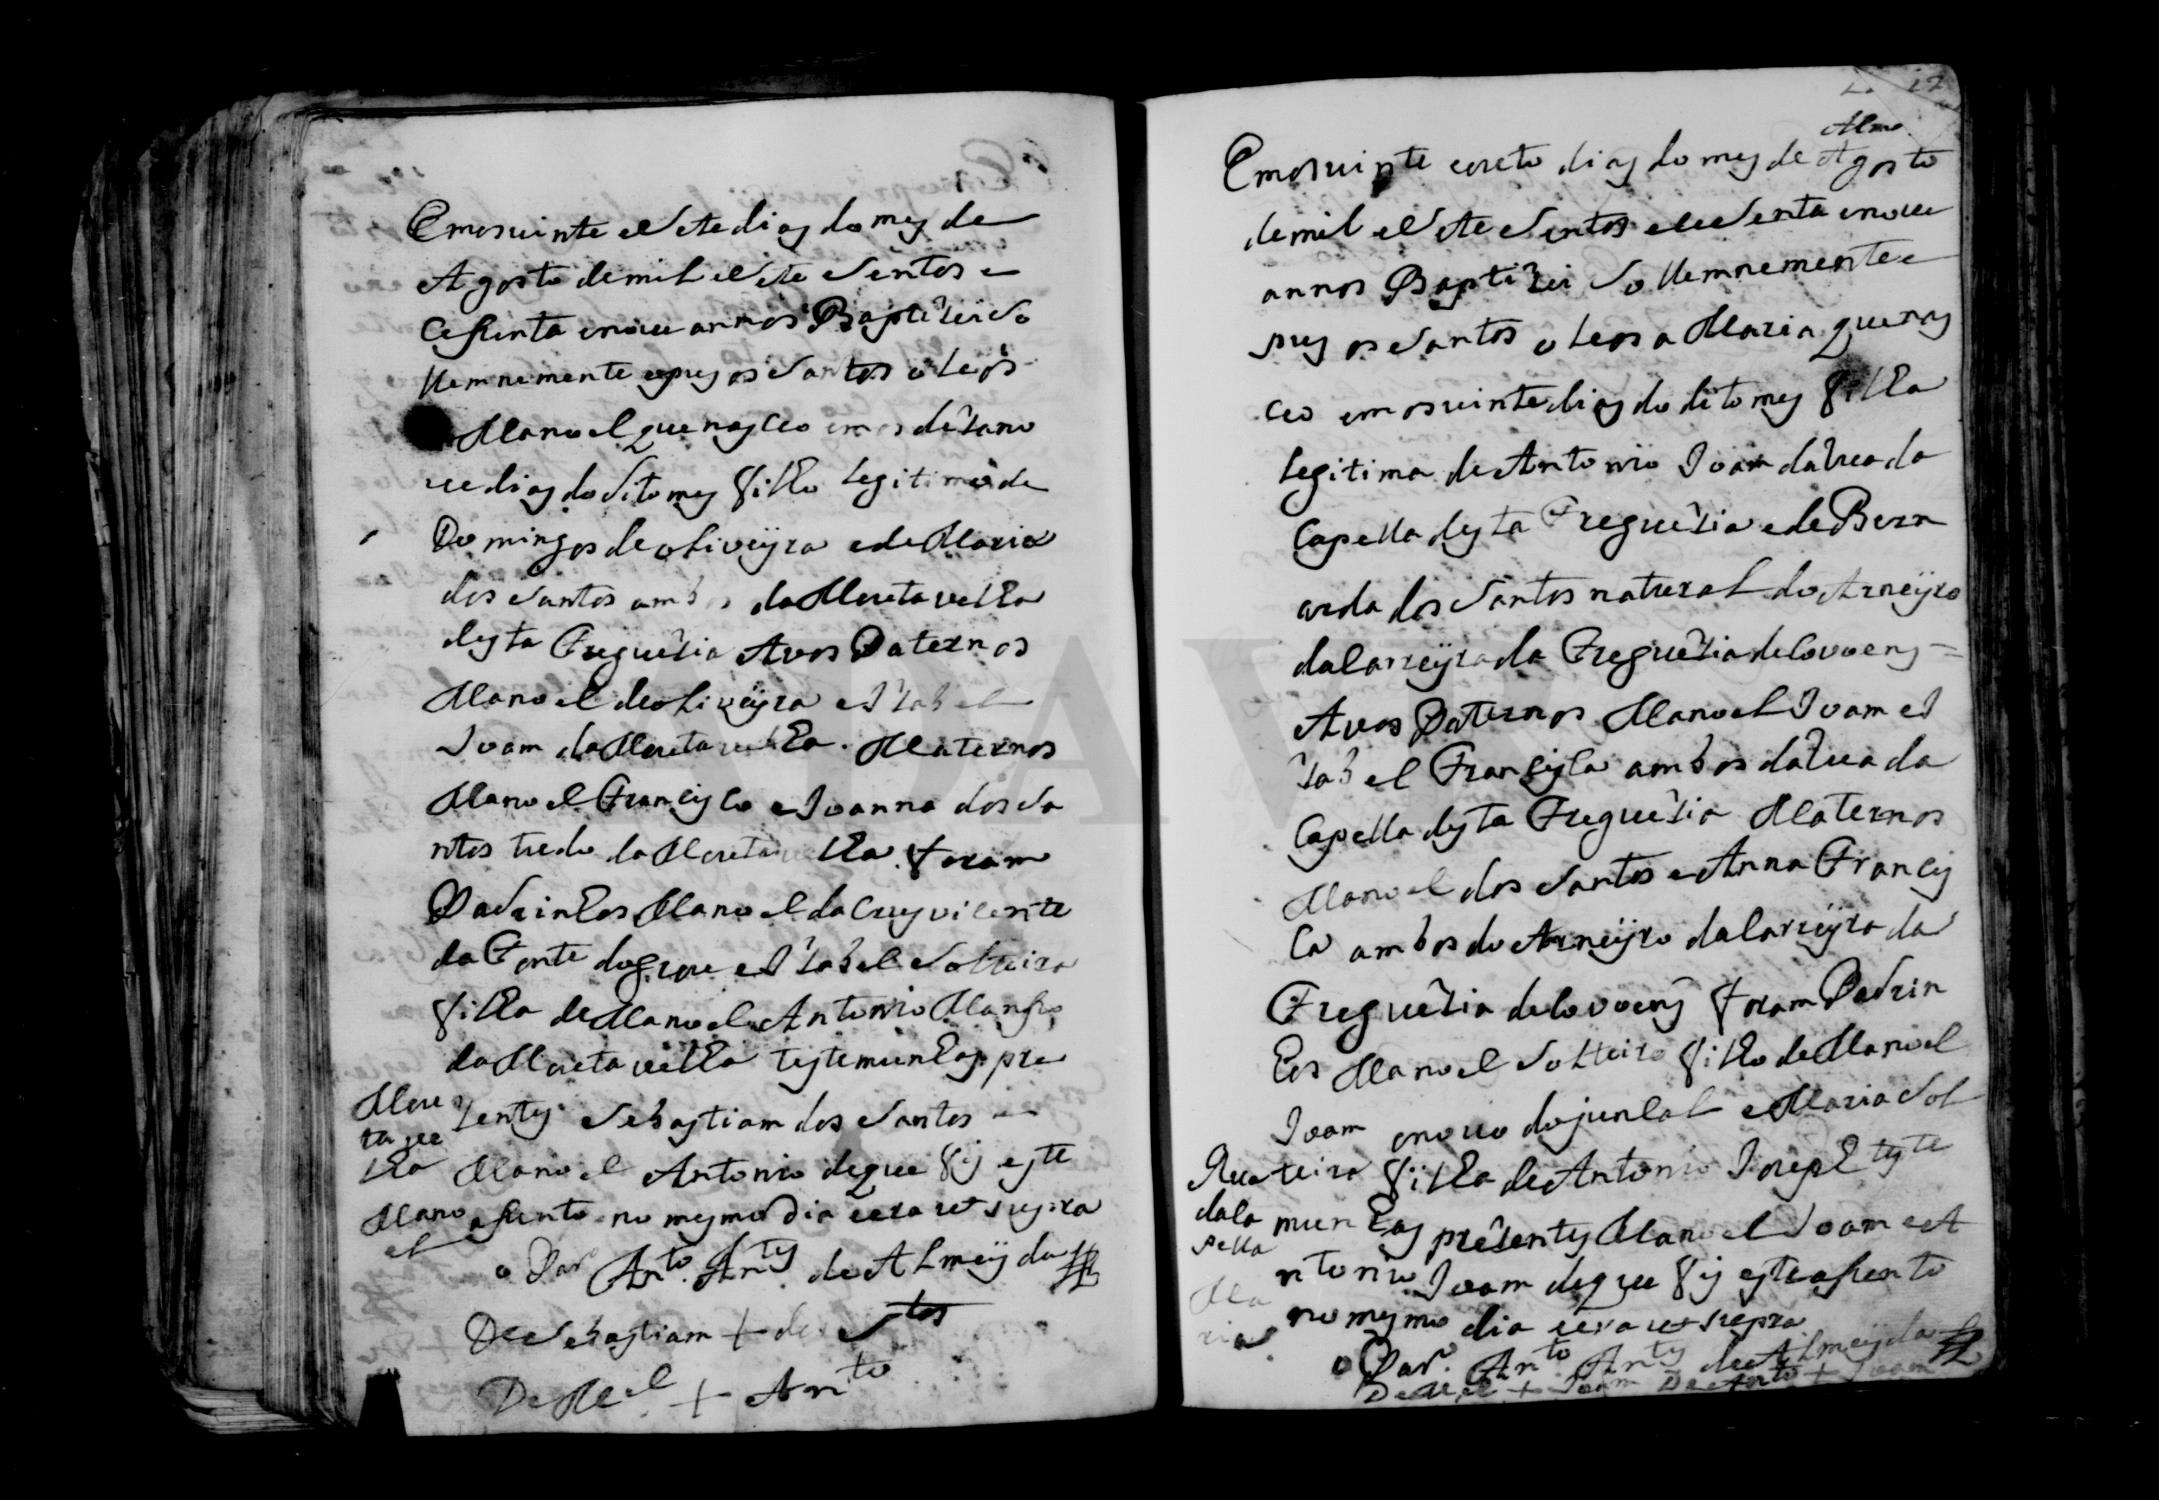 Emos vinte e Sete dias do mes de
Agosto de mil e Sete Sentos e
Cessenta e nove annos Baptizei So
llemnemente e pus os Santos oleos
a Manoel que nasceo em os deZano
ve dias do dito mes filho legitimo de
Domingos de oliveyra e de Maria
dos Santos ambos da Moutavelha
desta Freguezia Avos Paternos
Manoel de oliveyra e Izabel
Joam da Moutavelha. Maternos
Manoel Francisco e Joanna dos Sa
ntos tudo da Moutavelha foram
Padrinhos Manoel da Crus vicente
da Fonte do e Izabel Solteira
filha de Manoel Antonio Manso
da Moutavelha testemunhas pre
Zentes Sebastiam dos Santos e
Manoel Antonio de que fis este
assento no mesmo dia vera ut supra
o Par Anto. Ants. de Almeyda
De Sebastiam + dos Stos
De Mel + Anto
Mou
ta ve
lha
Mano
el
12
Emos vinte e outo dias do mes de Agosto
de mil e Sete Sentos e ceSenta e nove
annos Baptizei Sollemnemente e
pus os Santos oleos a Maria que nas
ceo em os vinte dias do dito mes filha
legitima de Antonio Joam da Rua da
Capella desta Freguezia e de Bern
arda dos Santos natural do Arneyro
da Carreyra da Freguezia de Covoens =
Avos Paternos Manoel Joam e I
zabel Francisca ambos da Rua da
Capella desta Freguezia Maternos
Manoel dos Santos e Anna Francis
ca ambos do Arneyro da Carreyra da
Freguezia de Covoens foram Padrin
hos Manoel Solteiro filho de Manoel
Joam o novo do juncal e Maria Sol
teira filha de Antonio Joseph teste
munhas prezentes Manoel Joam e A
ntonio Joam de que fis este assento
no mesmo dia vera ut supra
o Par. Anto Ants de Almeyda
De Mel + Joam De Anto + Joam
Rua
da Ca
pella
Ma
ria
ADAV